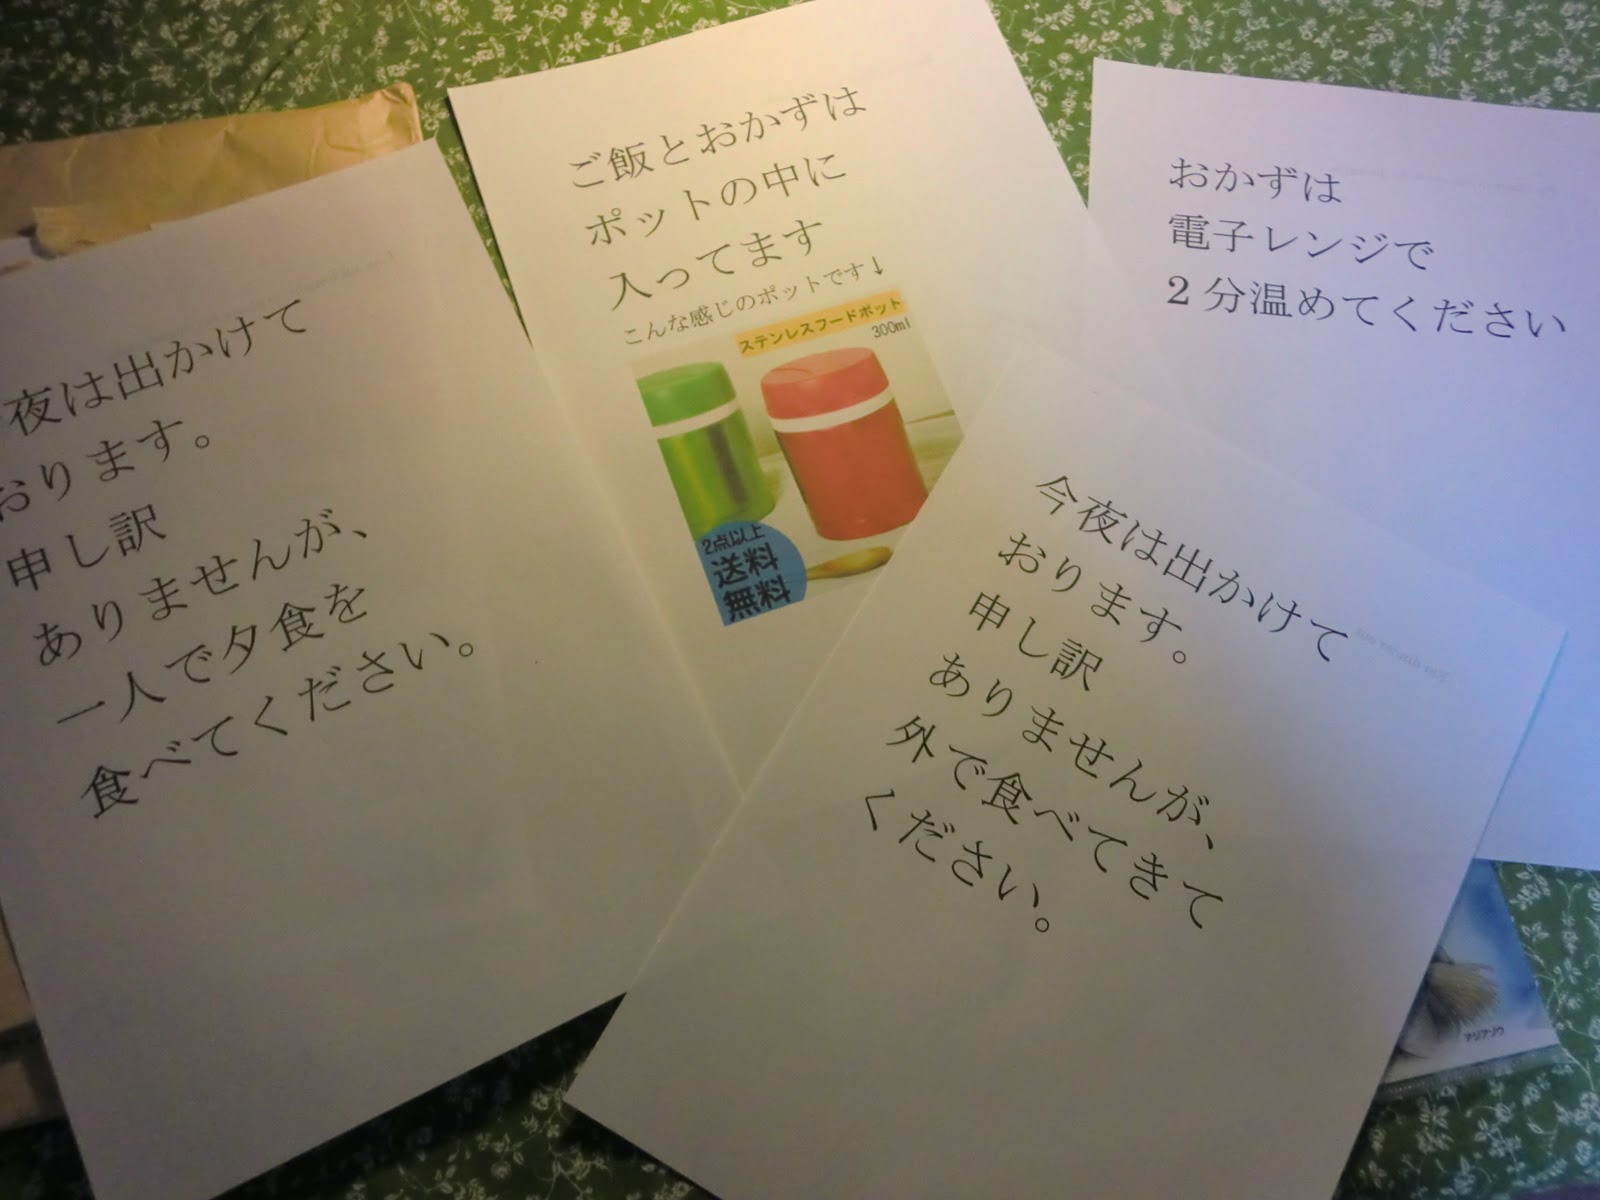 夜は出かけて
おります。
申し訳
ありませんが、
一人で夕食を
食べてください。
ご飯とおかずは
ポットの中に
入ってます
こんな感じのポットです↓
ステンレスフードポット
300ml
2点以上
送料
無料
おかずは
電子レンジで
2分温めてください
今夜は出かけて
おります。
申し訳
ありませんが、
外で食べてきて
ください。